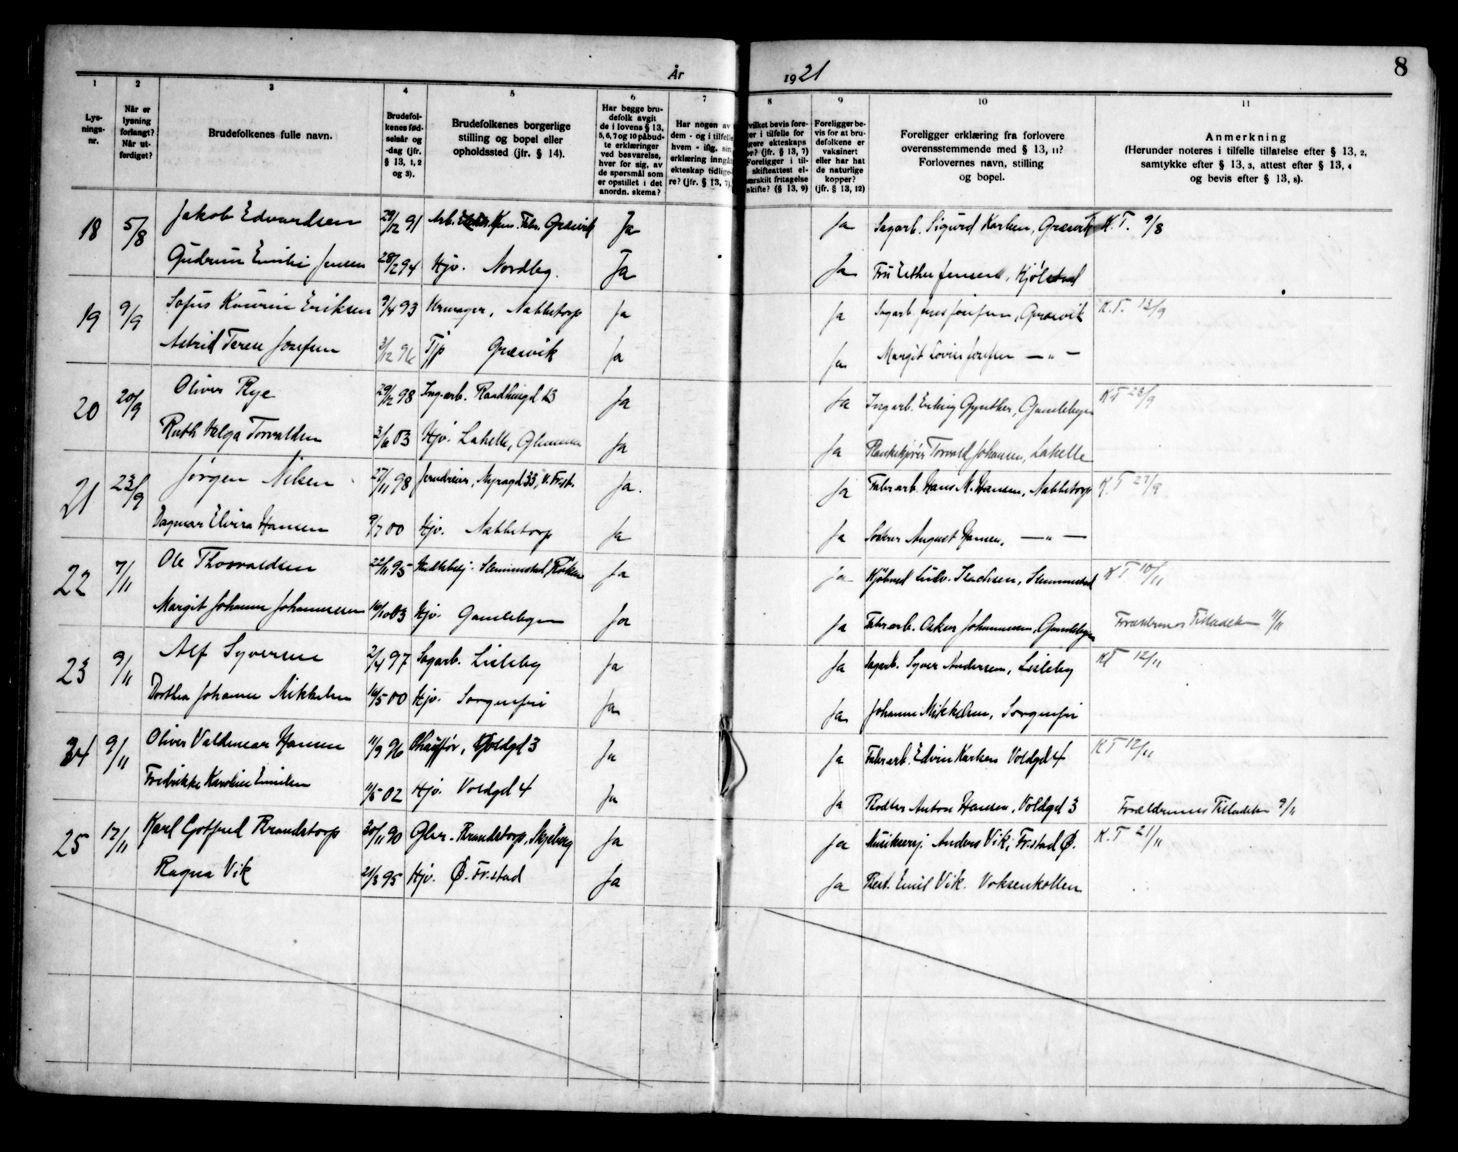 År 1921
8
1 2 3 4 5 6 7 8 9 10 11
Lysnings-nr.
Når er lysning forlangt? Når utferdiget?
Brudefolkenes fulle navn.
Brudefolkenes fødselsår og -dag (jfr. § 13, 1, 2 og 3).
Brudefolkenes borgerlige stilling og bopel eller opholdssted (jfr. § 14).
Har begge brudefolk avgit de i lovens § 13, 5, 6, 7 og 10 påbudte erklæringer ved besvarelse, hver for sig, av de spørsmål som er opstillet i det anordn. skema?
Har nogen av dem - og i tilfelle hvem - iflg. sin erklæring inngått ekteskap tidligere? (jfr. § 13, 7).
Foreligger bevis for at brudefolkene er vakcinert eller har hat de naturlige kopper? (jfr. § 13, 12)
Foreligger erklæring fra forlovere overensstemmende med § 13, 11? Forlovernes navn, stilling og bopel.
Anmerkning (Herunder noteres i tilfelle tillatelse efter § 13, 2, samtykke efter § 13, 3, attest efter § 13, 4 og bevis efter § 13, 8).
18 5/8 Jakob Edvardsen 29/12 91 Arb. Græsvik Ja Ja Sagarb. Sigurd Karlsen, Græsvik K.T. 9/8
Gudrun Emilie Jensen 28/2 94 Hjv. Nordbg. Ja Ja Fru Esther Jensen, Kjølstad
19 9/9 Sofus Kaurin Eriksen 9/4 93 Urmager, Nabbetorp Ja Ja Sagarb. Jens Josefsen, Græsvik K.T. 13/9
Astrid Terese Josefsen 3/12 96 Tjp Græsvik Ja Ja Margit Lovise Josefsen — " —
20 20/9 Oliver Rye 29/12 98 Ja Ja Erling Gynther, Gamlebyen KT 23/9
Ruth Helga Torvaldsen 3/6 03 Hjv. Lahelle, Glemmen Ja Ja Plankekjører Torvald Johansen, Lahelle
21 23/9 Jørgen Nilsen 27/11 98 Jerndreier, Nyragd 33, v. Fr.st. Ja Ja Fabr.arb. Hans M. Hansen, Nabbetorp K.T 27/9
Dagmar Elvira Hansen 9/7 00 Hjv. Nabbetorp Ja Ja August Hansen, — " —
22 7/11 Ole Thorvaldsen 22/11 95 Slemmestad, Røken Ja Ja Kjøbmd Ludv. Isachsen, Slemmestad KT 10/11
Margit Johanne Johannessen 16/10 03 Hjv. Gamlebyen Ja Ja Fabr.arb. Oskar Johannessen, Gamlebyen Forældrenes Tilladelse 11/11
23 9/11 Alf Syversen 2/4 97 Sagarb. Lisleby Ja Ja Sagarb. Syver Andersen, Lisleby KT 12/11
Dorthea Johanne Mikkelsen 16/5 00 Hjv. Sorgenfri Ja Ja Johannes Mikkelsen, Sorgenfri
24 9/11 Oliver Valdemar Hansen 11/9 96 Chauffør, Voldgd 3 Ja Ja Fabr.arb. Edvin Karlsen Voldgd 4 KT 12/11
Fredrikke Karoline Emilsen 11/5 02 Hjv. Voldgd 4 Ja Ja Anton Hansen, Voldgd 3 Forældrenes Tilladelse 9/11
25 17/11 Karl Gotfred Brandstorp 30/11 90 Brandstorp, Skjeberg Ja Ja Anders Vik, Fr.stad Ø. K.T 21/11
Ragna Vik 21/3 95 Hjv. Ø. Fr.stad Ja Ja Best. Emil Vik. Voksenkollen